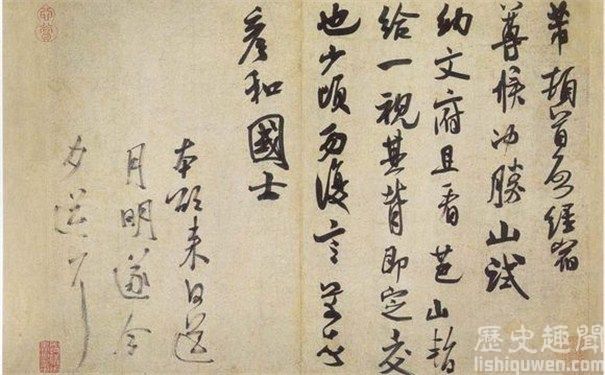 芾頓首啟經宿
尊候沖勝山試
納文府且看芭山暫
給一視其背即定交
也少頃勿復言芾頓首
彥和國士
本欲來日送
月明遂今
夕送耳
歷史趣聞
lishiquwen.com